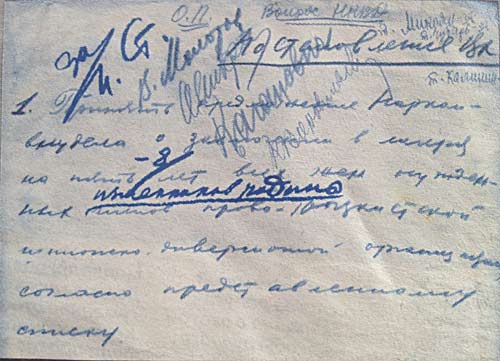 О.П. Вопрос НКВД
т. Микоян
за И. Ст.
В. Молотов
Каганович
Постановление ЦК
т. Калинин
1. Принять предложение Нарком-
внудела о заключении в лагеря
на пять - 8 лет всех жен осужден-
изменников родины
ных членов право-троцкистской
шпионско-диверсионной организации
согласно представленному
списку.